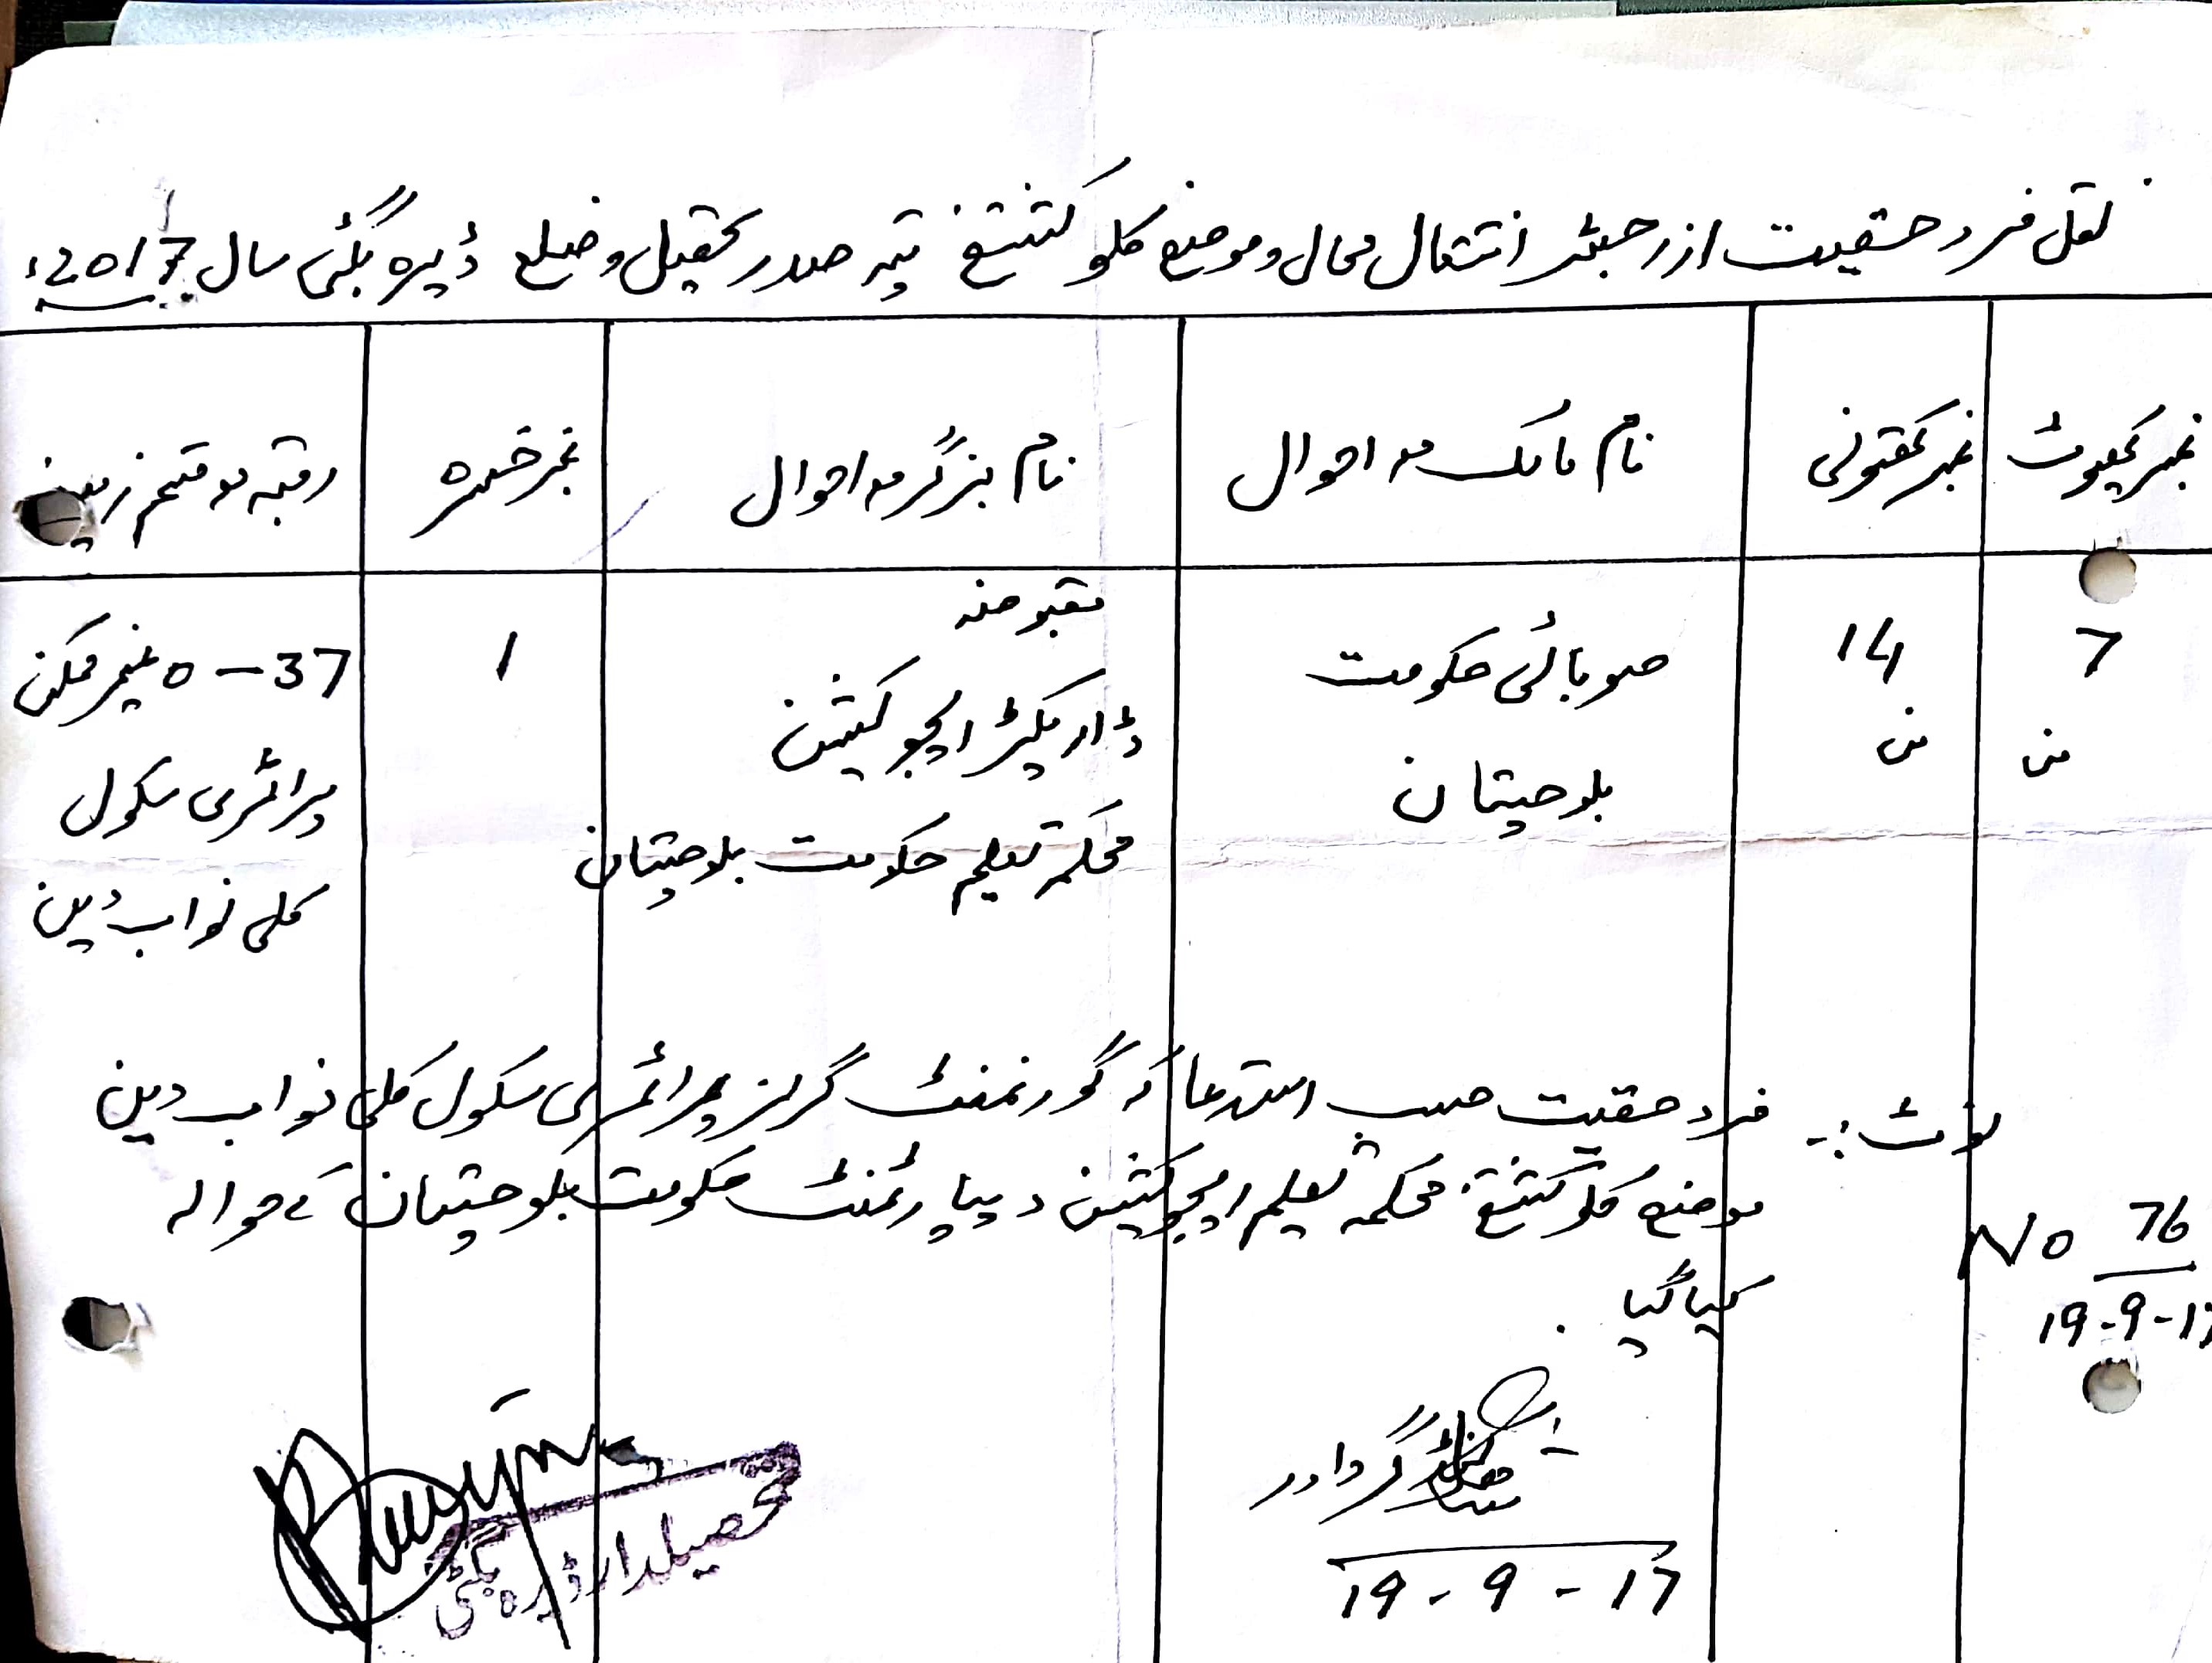 نقل فرد حقیت از رجسٹر انتقال محال و موضع کلو کتشغ تپہ صدر تحصیل و ضلع ڈیرہ بگٹی سال 2017ء
نمبر کھیوٹ نمبر کھتونی نام مالک مہ احوال نام بزگر مہ احوال نمبر خسرہ رقبہ مہ قسم زمین
7 14 صوبائی حکومت مقبوضہ 1 37-0 غیر ممکن
من من بلوچستان ڈاریکٹر ایجوکیشن پرائمری سکول
محکمہ تعلیم حکومت بلوچستان کلی نواب دین
نوٹ:- فرد حقیت حسب استدعا کہ گورنمنٹ گرلز پرائمری سکول کلی نواب دین
موضع کلو کتشغ محکمہ تعلیم ایجوکیشن دیپارٹمنٹ حکومت بلوچستان کے حوالہ
کیا گیا.
No 76
19-9-17
گرداور
19-9-17
تحصیلدار ڈیرہ بگٹی